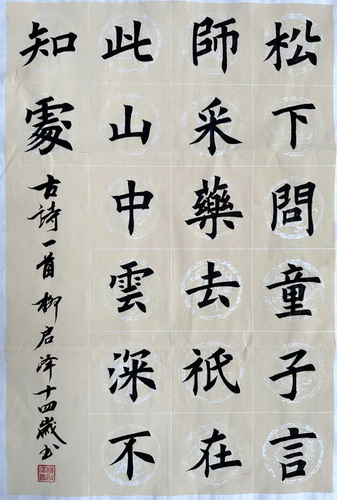 松下問童子言
師采藥去祇在
此山中雲深不
知處
古詩一首柳启泽十四歲书